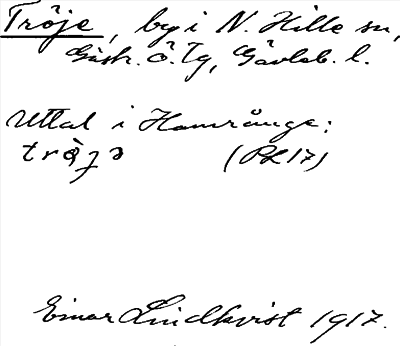 Tröje, by i N. Hille sn,
Gästr. ö. Tg, Gävleb. l.
Uttal i Hamrånge:
(PL17)
Einar Lindkvist 1917.